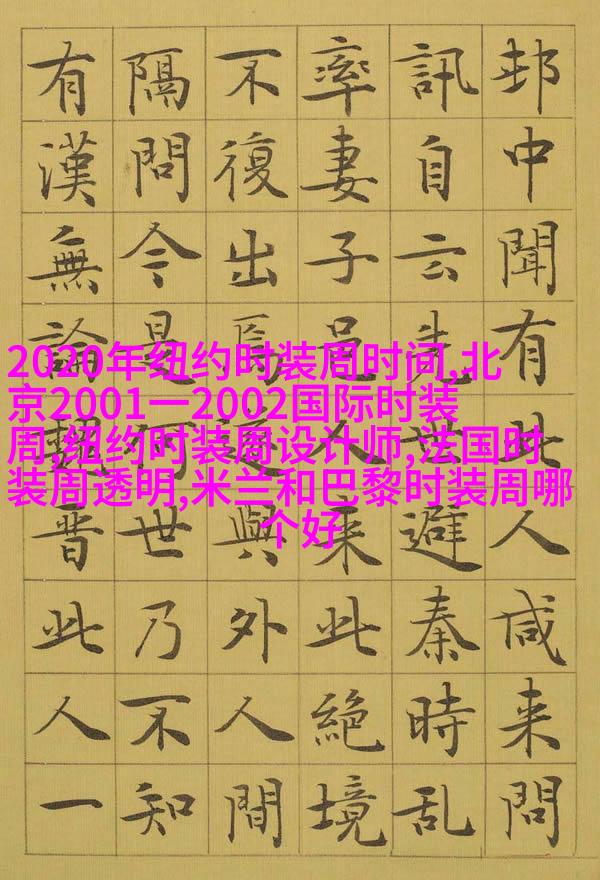 邨中聞有此人咸来問
訊自云先世避秦時乱
率妻子邑人来此絶境
不復出焉遂與外人間
隔問今是何世乃不知
有漢無論魏晋此人一
2020年纽约时装周时间,北
京2001一2002国际时装
周,纽约时装周设计师,法国时
装周透明,米兰和巴黎时装周哪
个好